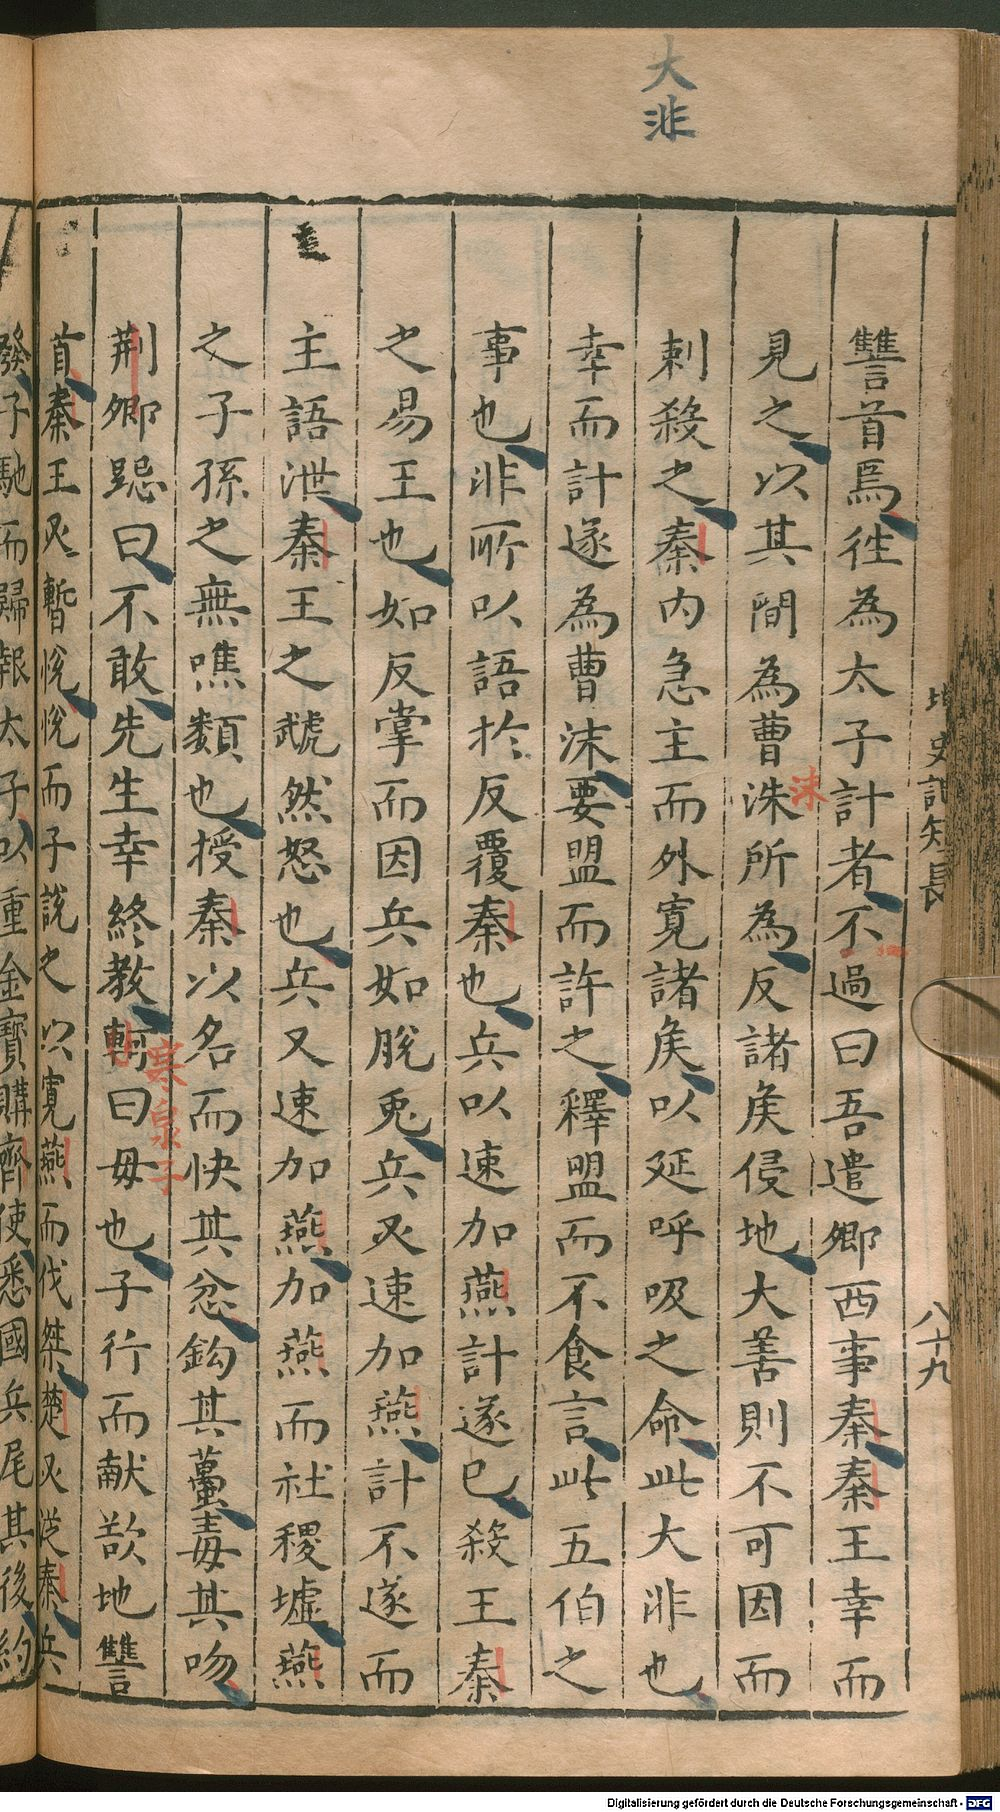 大非
讐首焉徃為太子計者不過曰吾遣卿西事秦秦王幸而
見之以其間為曹洙所為反諸矦侵地大善則不可因而
沬
刺殺之秦内急主而外寛諸矦以延呼吸之命此大非也
幸而計遂為曹沫要盟而許之釋盟而不食言此五伯之
事也非所以語扵反覆秦也兵以速加燕計遂巳殺王秦
之易王也如反掌而因兵如脫兎兵又速加燕計不遂而
主語泄秦王之虣然怒也兵又速加燕加燕而社稷墟燕
之子孫之無噍類也授秦以名而快其忿鈎其蠆毒其吻
荆卿跽曰不敢先生幸終教軻曰毋也子行而献款地讐
寒泉子
首秦王又暫悅悅而子說之以寛燕而伐桀楚又從秦兵
發子馳而歸報太子以重金寳購齊使悉國兵尾其後約
八十九
Digitalisierung gefördert durch die Deutsche Forschungsgemeinschaft - DFG